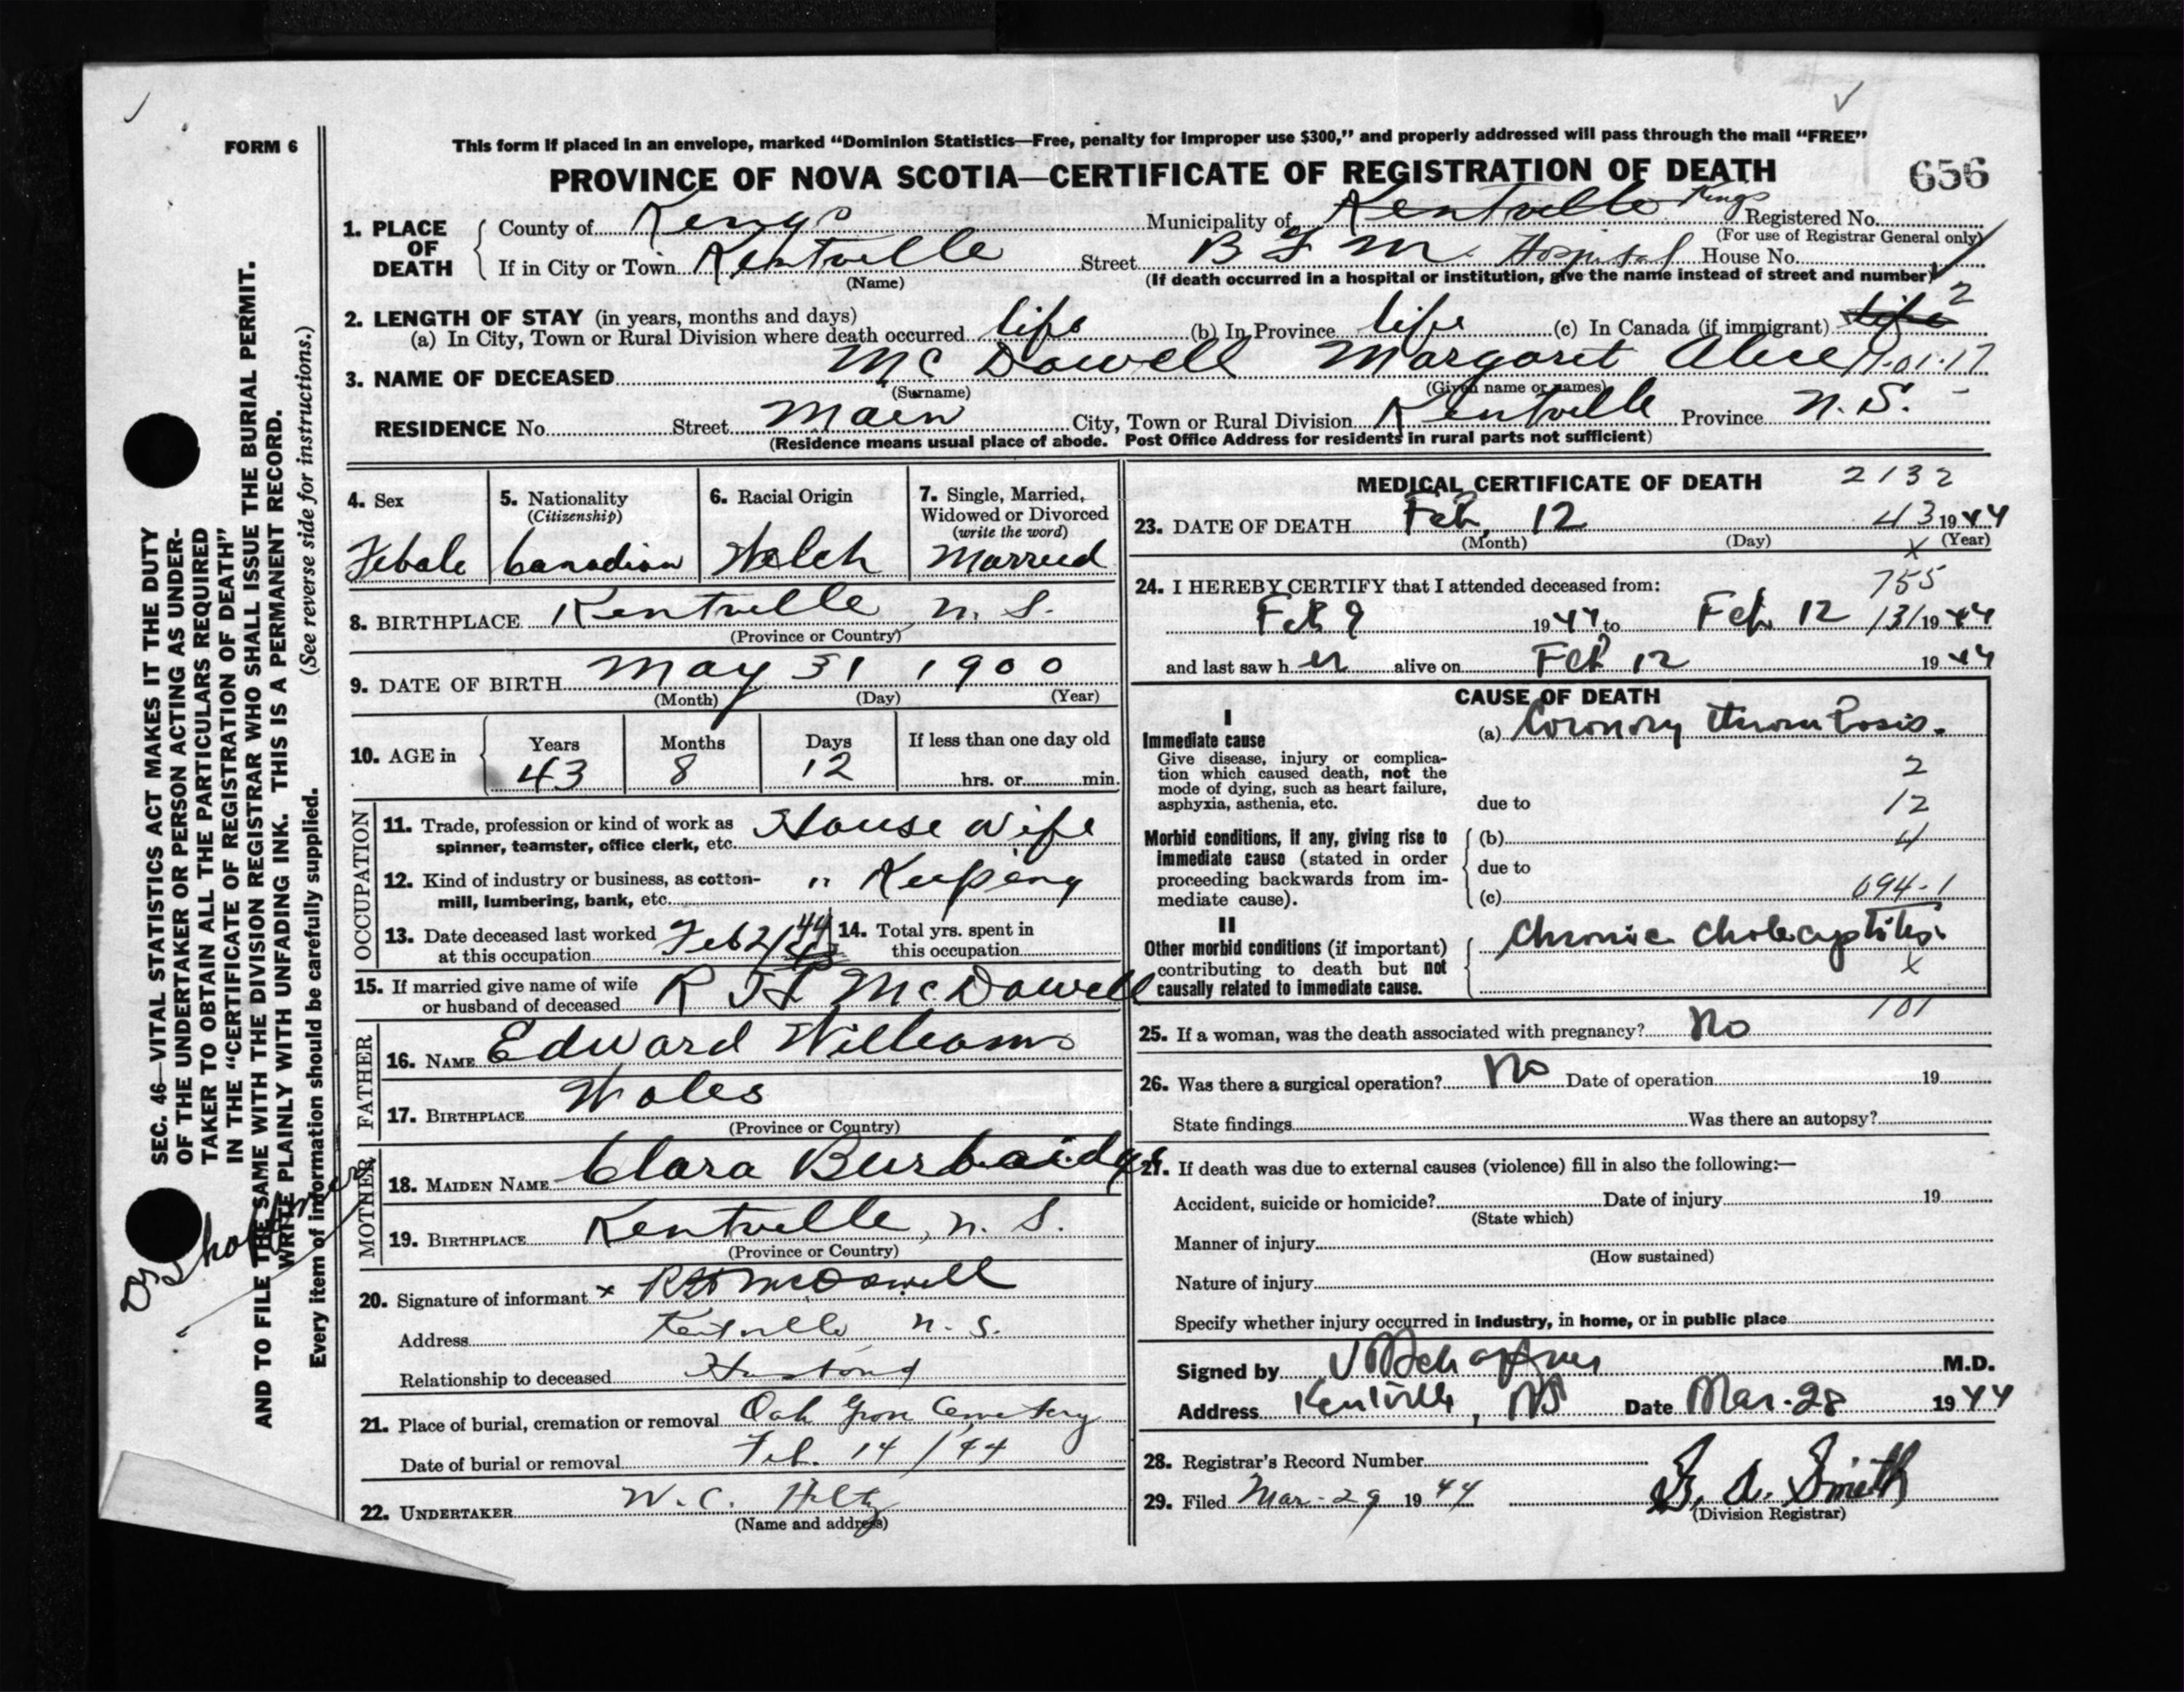 FORM 6
This form if placed in an envelope, marked “Dominion Statistics—Free, penalty for improper use $300,” and properly addressed will pass through the mail “FREE”
PROVINCE OF NOVA SCOTIA—CERTIFICATE OF REGISTRATION OF DEATH
656
1. PLACE OF DEATH County of Kings Municipality of Kentville Kings Registered No.
(For use of Registrar General only)
If in City or Town Kentville Street B F M Hospital House No.
(Name) (If death occurred in a hospital or institution, give the name instead of street and number)
2. LENGTH OF STAY (in years, months and days) 2
(a) In City, Town or Rural Division where death occurred life (b) In Province life (c) In Canada (if immigrant) life
3. NAME OF DECEASED Mc Dowell Margaret Alice
(Surname) (Given name or names)
RESIDENCE No. Street Main City, Town or Rural Division Kentville Province N. S.
(Residence means usual place of abode. Post Office Address for residents in rural parts not sufficient)
4. Sex 5. Nationality (Citizenship) 6. Racial Origin 7. Single, Married, Widowed or Divorced (write the word)
Febale Canadian Welch Married
8. BIRTHPLACE Kentville, N. S.
(Province or Country)
9. DATE OF BIRTH May 31 1900
(Month) (Day) (Year)
10. AGE in Years Months Days If less than one day old
43 8 12 hrs. or min.
OCCUPATION
11. Trade, profession or kind of work as House wife
spinner, teamster, office clerk, etc.
12. Kind of industry or business, as cotton- " Keeping
mill, lumbering, bank, etc.
13. Date deceased last worked Feb 2/44 14. Total yrs. spent in
at this occupation this occupation
15. If married give name of wife R H McDowell
or husband of deceased
FATHER
16. NAME Edward Williams
17. BIRTHPLACE Wales
(Province or Country)
MOTHER
18. MAIDEN NAME Clara Burbaidge
19. BIRTHPLACE Kentville, N. S.
(Province or Country)
20. Signature of informant x R H McDowell
Address Kentville N. S.
Relationship to deceased Husband
21. Place of burial, cremation or removal Oak Grove Cemetery
Date of burial or removal Feb. 14/44
22. UNDERTAKER W. C. Hiltz
(Name and address)
MEDICAL CERTIFICATE OF DEATH 2132
23. DATE OF DEATH Feb, 12 43 1944
(Month) (Day) x (Year)
24. I HEREBY CERTIFY that I attended deceased from: 755
Feb 9 1944 to Feb 12 131 1944
and last saw h er alive on Feb 12 1944
CAUSE OF DEATH
I
Immediate cause (a) Coronory thrombosis.
Give disease, injury or complica-
tion which caused death, not the 2
mode of dying, such as heart failure,
asphyxia, asthenia, etc. due to 12
Morbid conditions, if any, giving rise to (b) 4
immediate cause (stated in order due to
proceeding backwards from im-
mediate cause). (c) 094-1
II
Other morbid conditions (if important) Chronic
contributing to death but not x
causally related to immediate cause.
101
25. If a woman, was the death associated with pregnancy? No
26. Was there a surgical operation? No Date of operation 19
State findings Was there an autopsy?
27. If death was due to external causes (violence) fill in also the following:—
Accident, suicide or homicide? Date of injury 19
(State which)
Manner of injury
(How sustained)
Nature of injury
Specify whether injury occurred in industry, in home, or in public place
Signed by M.D.
Address Kentville, NS Date Mar. 28 1944
28. Registrar's Record Number
29. Filed Mar. 29 1944 Smith
(Division Registrar)
SEC. 46—VITAL STATISTICS ACT MAKES IT THE DUTY
OF THE UNDERTAKER OR PERSON ACTING AS UNDER-
TAKER TO OBTAIN ALL THE PARTICULARS REQUIRED
IN THE “CERTIFICATE OF REGISTRATION OF DEATH”
AND TO FILE THE SAME WITH THE DIVISION REGISTRAR WHO SHALL ISSUE THE BURIAL PERMIT.
WRITE PLAINLY WITH UNFADING INK. THIS IS A PERMANENT RECORD.
Every item of information should be carefully supplied. (See reverse side for instructions.)